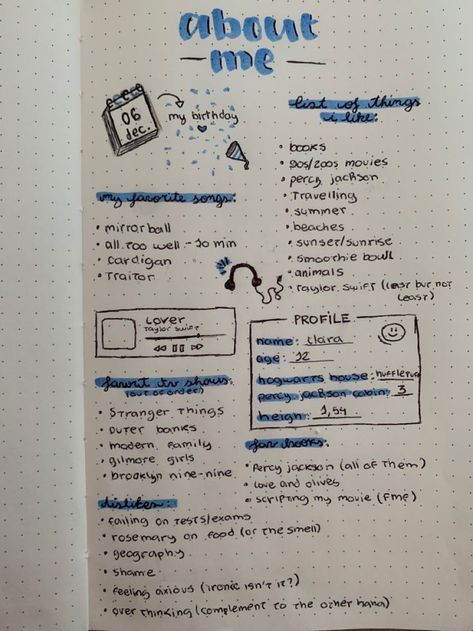 about
me
06
dec.
my birthday
list of things
i like:
• books
• 90s/200s movies
• percy jackson
• Travelling
• summer
• beaches
• sunset/sunrise
• smoothie bowl
• animals
• Taylor swift (least but not
least)
my favorite songs:
• mirrorball
• all too well - 10 min
• cardigan
• Traitor
Lover
Taylor swift
PROFILE
name: clara
age: 12
hogwarts house: hufflepuff
percy jackson cabin: 3
heigh: 1,54
favorit tv shows:
(out of order)
• stranger things
• outer banks
• modern family
• gilmore girls
• brooklyn nine-nine
fav books:
• Percy jackson (all of them)
• love and olives
• scripting my movie (fmp)
dislikes:
• failing on tests/exams
• rosemary on food (or the smell)
• geography
• shame
• feeling axious (ironic isn't it?)
• over thinking (complement to the other hand)